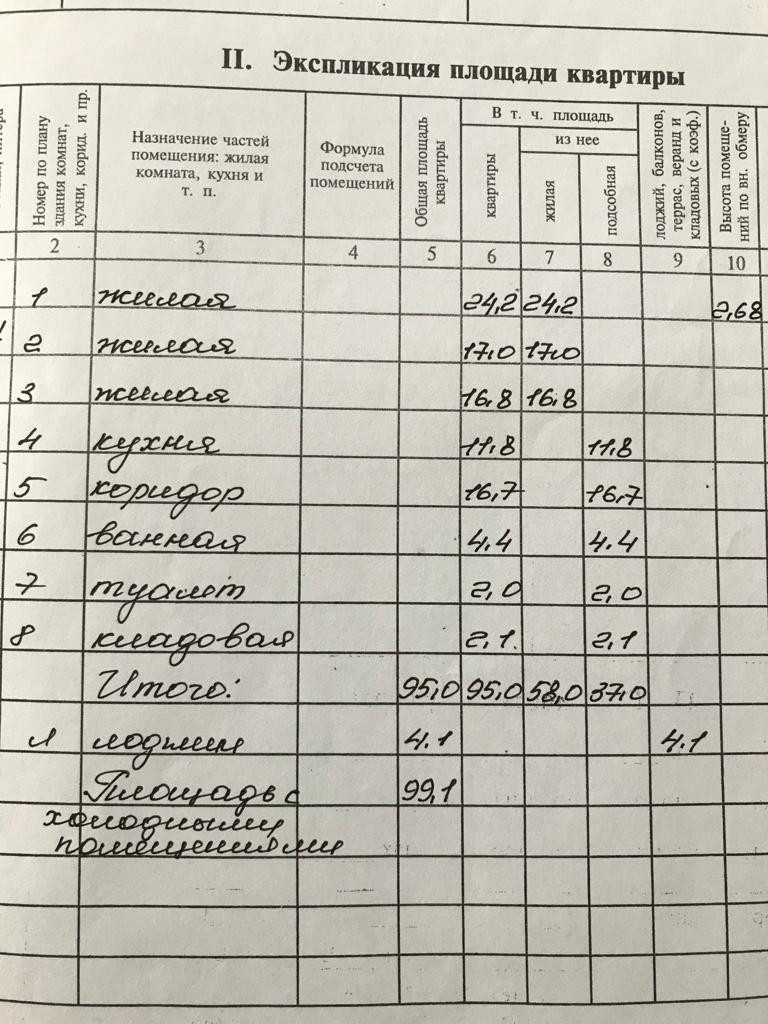 II. Экспликация площади квартиры
Номер по плану здания комнат, кухни, корид. и пр.
Назначение частей помещения: жилая комната, кухня и т. п.
Формула подсчета помещений
Общая площадь квартиры
В т. ч. площадь
из нее
квартиры
жилая
подсобная
лоджий, балконов, террас, веранд и кладовых (с коэф.)
Высота помещений по вн. обмеру
2 3 4 5 6 7 8 9 10
1 жилая 24,2 24,2 2,68
2 жилая 17.0 17.0
3 жилая 16,8 16,8
4 кухня 11,8 11,8
5 коридор 16,7 16,7
6 ванная 4.4 4.4
7 туалет 2,0 2,0
8 кладовая 2,1 2,1
Итого: 95,0 95,0 58,0 37,0
л лоджии 4.1 4.1
Площадь с 99,1
холодными
помещениями